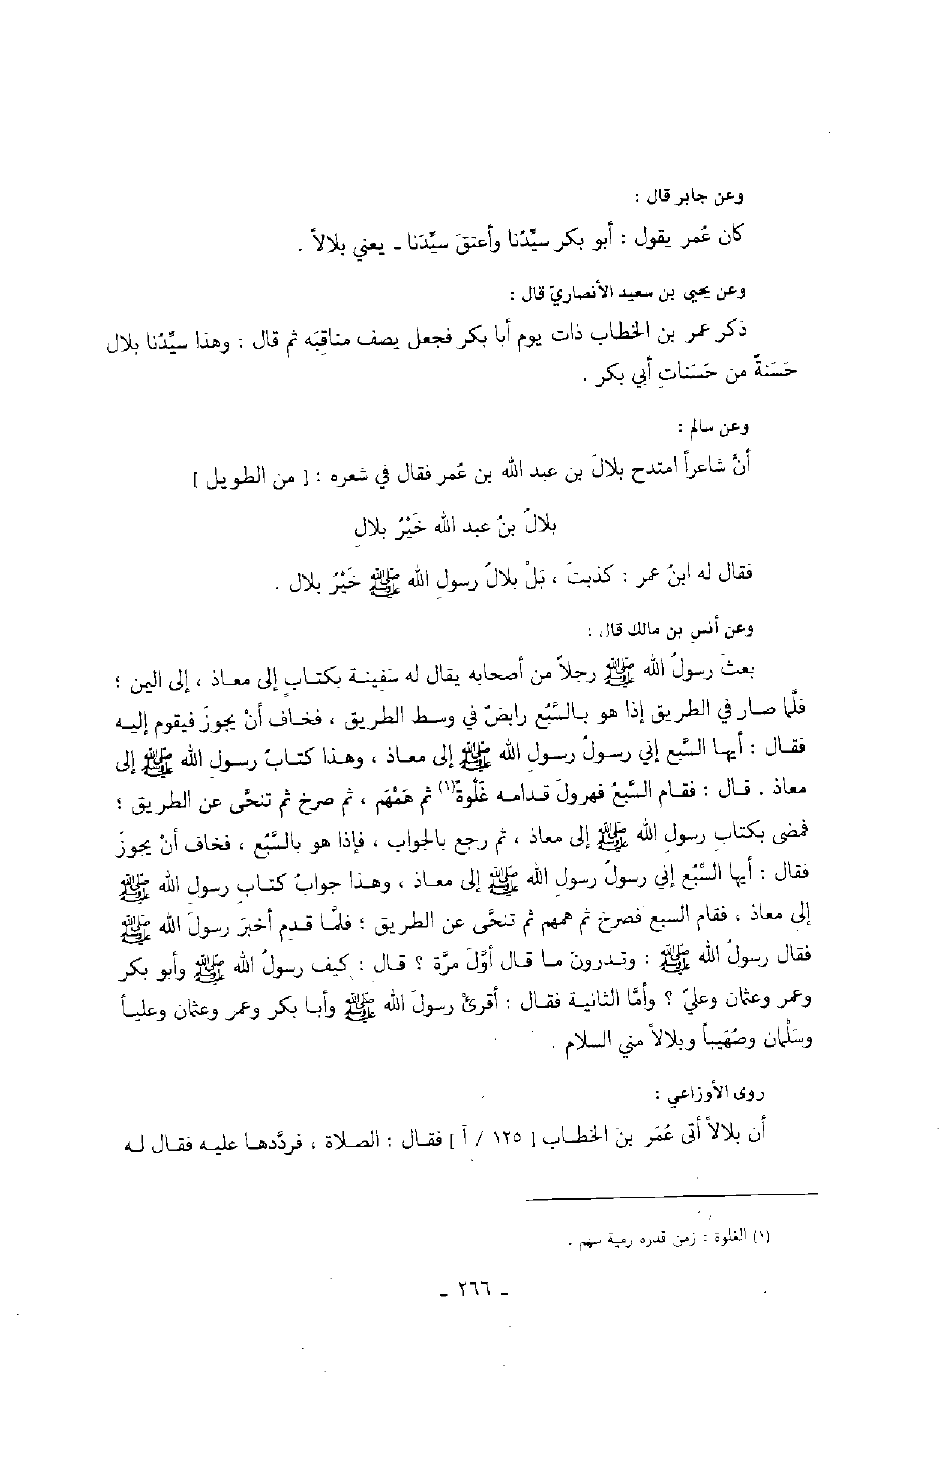 وعن جابر قال :
كان عُمر يقول : أبو بكر سيِّدُنا وأعتقَ سيِّدَنا ـ يعني بلالاً .
وعن يحيى بن سعيد الأنصاريّ قال :
ذكر عمر بن الخطاب ذات يوم أبا بكر فجعل يصف مناقبَه ثم قال : وهذا سيِّدُنا بلال
حَسَنةٌ من حَسَناتِ أبي بكر .
وعن سالم :
أنَّ شاعراً امتدح بلالَ بن عبد الله بن عُمر فقال في شعره : [ من الطويل ]
بلالُ بنُ عبد الله خَيْرُ بلالِ
فقال له ابنُ عمر : كذبتَ ، بَلْ بلالُ رسولِ الله ﷺ خَيْرُ بلال .
وعن أنس بن مالك قال :
بعثَ رسولُ الله ﷺ رجلاً من أصحابه يقال له سَفِينـة بكتـابٍ إلى معـاذ ، إلى اليمن ؛
فلَّما صـار في الطريق إذا هو بـالسَّبُع رابضٌ في وسط الطريق ، فخـاف أنْ يجوزَ فيقوم إليـه
فقـال : أيهـا السَّبع إني رسولُ رسولِ الله ﷺ إلى معاذ ، وهـذا كتـابُ رسولِ الله ﷺ إلى
معاذ . قـال : فقـام السَّبعُ فهرولَ قـدامـه غَلْوةً(١) ثم هَمْهَم ، ثم صرخ ثم تنحَّى عن الطريق ؛
فمضى بكتابِ رسولِ الله ﷺ إلى معاذ ، ثم رجع بالجواب ، فإذا هو بالسَّبُع ، فخاف أنْ يجوزَ
فقال : أيها السَّبُع إني رسولُ رسولِ الله ﷺ إلى معـاذ ، وهـذا جوابُ كتـابِ رسولِ الله ﷺ
إلى معاذ ، فقام السبع فصرخ ثم همهم ثم تنحَّى عن الطريق ؛ فلمَّـا قـدم أخبرَ رسولَ الله ﷺ
فقال رسولُ الله ﷺ : وتـدرونَ مـا قـال أوَّلَ مرَّة ؟ قـال : كيف رسولُ الله ﷺ وأبو بكر
وعمر وعثمان وعليّ ؟ وأمَّا الثانيـة فقـال : أقرئْ رسولَ الله ﷺ وأبـا بكر وعمر وعثمان وعليـاً
وسَلْمان وصُهَيباً وبلالاً مني السلام .
روى الأوزاعي :
أن بلالاً أتى عُمَر بنَ الخطـاب [ ١٢٥ / آ ] فقـال : الصـلاة ، فردَّدهـا عليـه فقـال لـه
(١) الغلوة : زمن قدره رمية سهم .
ـ ٢٦٦ ـ